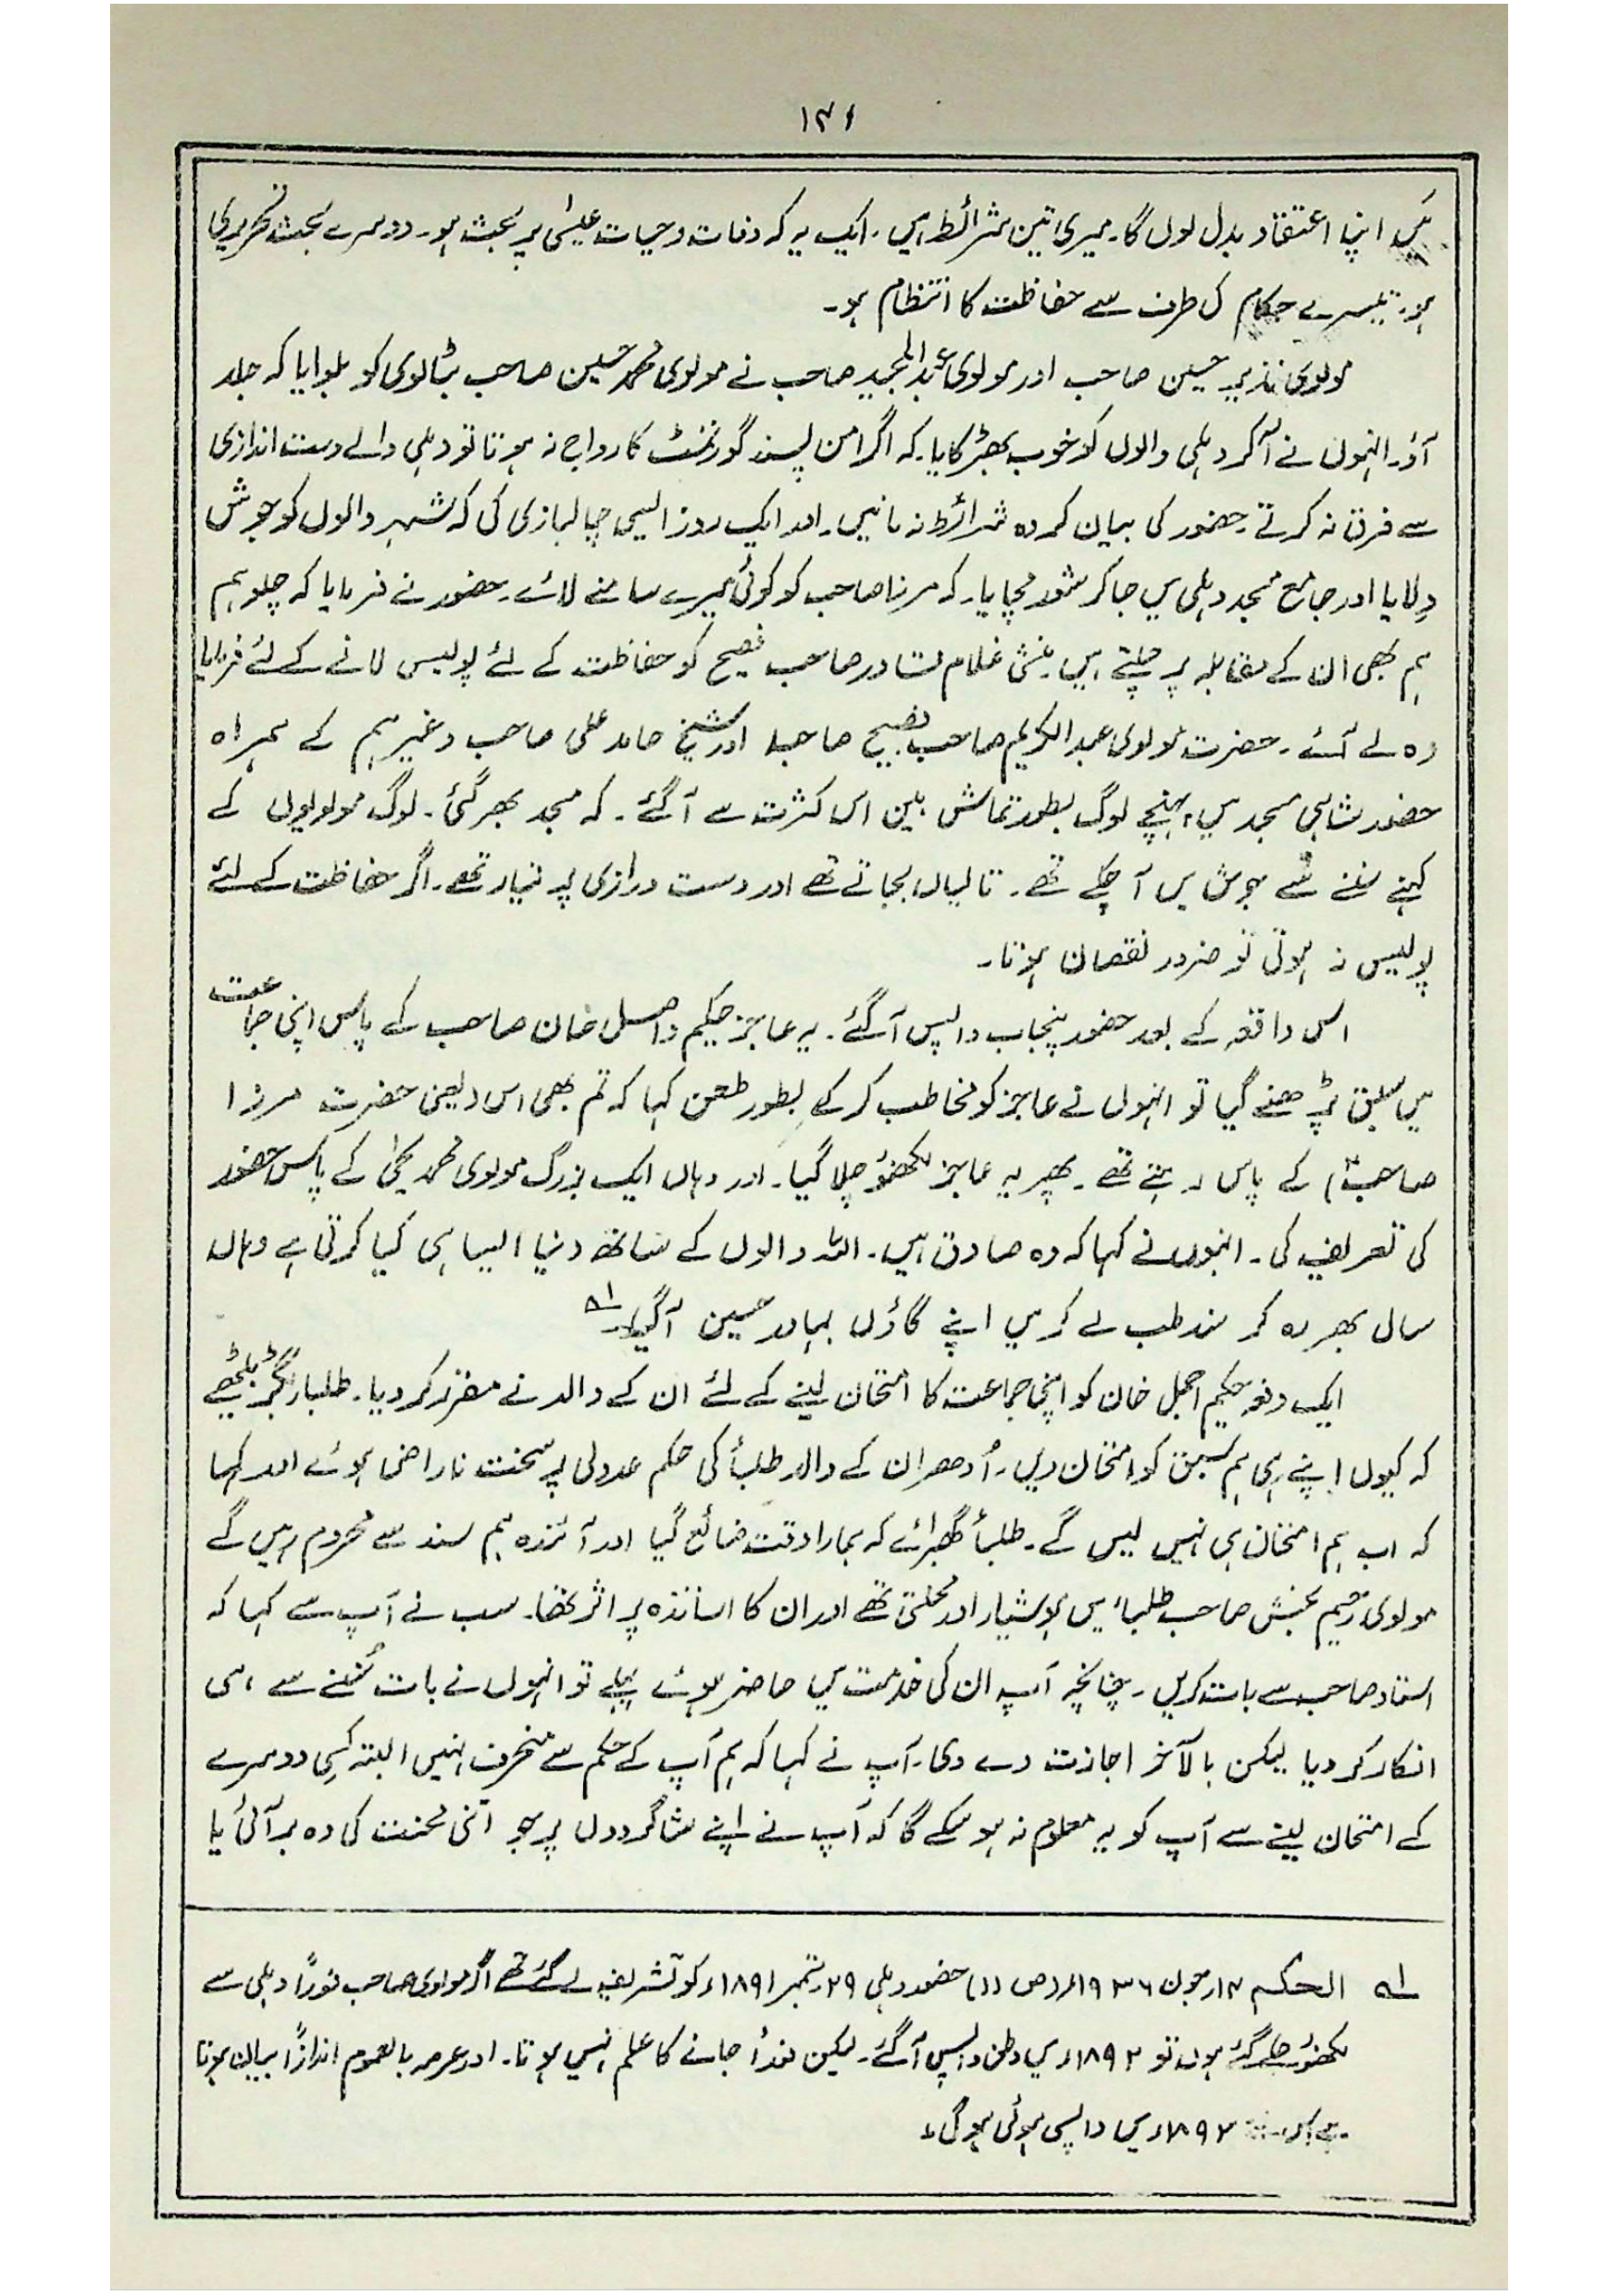 ۱۴۱
میں اپنا اعتقاد بدل لوں گا۔ میری تین شرائط ہیں۔ ایک یہ کہ وفات و حیات عیسیٰ پر بحث ہو۔ دوسرے بحث تحریری
ہو۔ تیسرے حکام کی طرف سے حفاظت کا انتظام ہو۔
مولوی نذیر حسین صاحب اور مولوی عبدالمجید صاحب نے مولوی محمد حسین صاحب بٹالوی کو بلوایا کہ جلد
آؤ۔ انہوں نے آکر دہلی والوں کو خوب بھڑکایا۔ کہ اگر امن پسند گورنمنٹ کا رواج نہ ہوتا تو دہلی والے دست اندازی
سے فرق نہ کرتے۔ حضور کی بیان کردہ شرائط نہ مانیں۔ اور ایک روز ایسی چالبازی کی کہ شہر والوں کو جوش
دلایا اور جامع مسجد دہلی میں جا کر شور مچایا۔ کہ مرزا صاحب کو کوئی میرے سامنے لائے۔ حضور نے فرمایا کہ چلو ہم
ہم بھی ان کے مقابلہ پر چلتے ہیں۔ منشی غلام قادر صاحب فصیح کو حفاظت کے لئے پولیس لانے کے لئے فرمایا
وہ لے آئے۔ حضرت مولوی عبدالکریم صاحب فصیح صاحب اور شیخ حامد علی صاحب وغیرہم کے ہمراہ
حضور شاہی مسجد میں پہنچے لوگ بطور تماش بین اس کثرت سے آگئے۔ کہ مسجد بھر گئی۔ لوگ مولویوں کے
کہنے سننے سے جوش میں آ چکے تھے۔ تالیاں بجاتے تھے اور دست درازی پر تیار تھے۔ اگر حفاظت کے لئے
پولیس نہ ہوتی تو ضرور نقصان ہوتا۔
اس واقعہ کے بعد حضور پنجاب واپس آگئے۔ یہ عاجز حکیم واصل خان صاحب کے پاس اپنی جماعت
میں سبق پڑھنے گیا تو انہوں نے عاجز کو مخاطب کر کے بطور طعن کہا کہ تم بھی اس (یعنی حضرت مرزا
صاحبؑ) کے پاس رہتے تھے۔ پھر یہ عاجز لکھنؤ چلا گیا۔ اور وہاں ایک بزرگ مولوی محمد یحیٰ کے پاس حضور
کی تعریف کی۔ انہوں نے کہا کہ وہ صادق ہیں۔ اللہ والوں کے ساتھ دنیا ایسا ہی کیا کرتی ہے وہاں
سال بھر رہ کر سند طب لے کر میں اپنے گاؤں بہادر حسین آگیا۔ لے
ایک دفعہ حکیم اجمل خان کو اپنی جماعت کا امتحان لینے کے لئے ان کے والد نے مقرر کر دیا۔ طلباء بگڑ بیٹھے
کہ کیوں اپنے ہی ہم سبق کو امتحان دیں۔ اُدھر ان کے والد طلبأ کی حکم عدولی پر سخت ناراض ہوئے اور کہا
کہ اب ہم امتحان ہی نہیں لیں گے۔ طلبأ گھبرائے کہ ہمارا وقت ضائع گیا اور آئندہ ہم سند سے محروم رہیں گے
مولوی رحیم بخش صاحب طلباء میں ہوشیار اور محنتی تھے اور ان کا اساتذہ پر اثر تھا۔ سب نے آپ سے کہا کہ
استاد صاحب سے بات کریں۔ چنانچہ آپ ان کی خدمت میں حاضر ہوئے پہلے تو انہوں نے بات سُننے سے ہی
انکار کر دیا لیکن بالآخر اجازت دے دی۔ آپ نے کہا کہ ہم آپ کے حکم سے منحرف نہیں البتہ کسی دوسرے
کے امتحان لینے سے آپ کو یہ معلوم نہ ہو سکے گا کہ آپ نے اپنے شاگردوں پر جو اتنی محنت کی وہ بر آئی یا
لے الحکم ۱۴؍جون ۱۹۳۶ء (ص ۱۱) حضور دہلی ۲۹؍ستمبر ۱۸۹۱ء کو تشریف لے گئے تھے اگر مولوی صاحب فوراً دہلی سے
لکھنؤ چلے گئے ہوں تو ۱۸۹۲ء میں وطن واپس آگئے۔ لیکن فوراً جانے کا علم نہیں ہوتا۔ اور عرصہ بالعموم اندازاً بیان ہوتا
ہے اس ۱۸۹۲ء میں واپسی ہوئی ہوگی۔